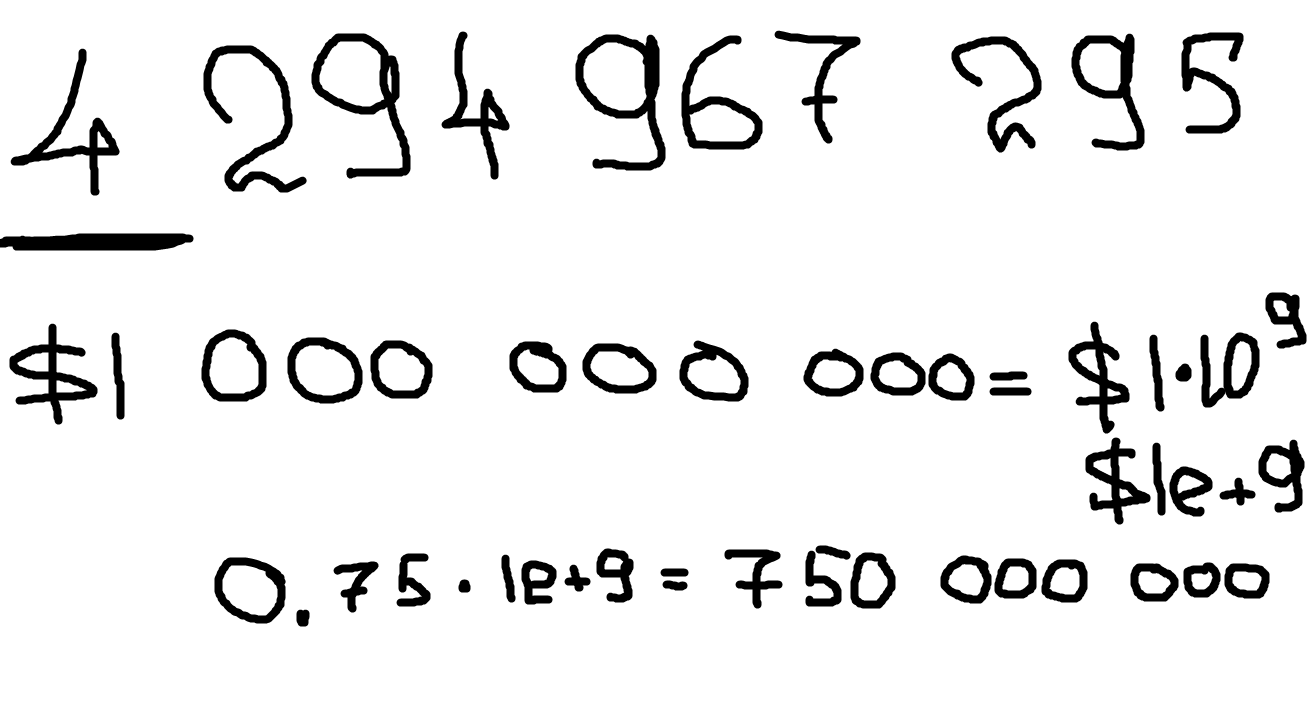 4 294 967 295
$1 000 000 000 = $1·10⁹
$1e+9
0.75·1e+9 = 750 000 000